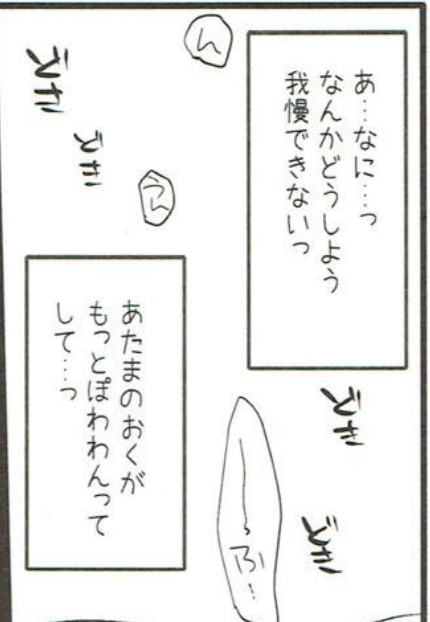 あ…なに…っ
なんかどうしよう
我慢できないっ
ん
どき
どき
うん
どき
どき
〜ふ…
あたまのおくが
もっとぽわわんって
して…っ